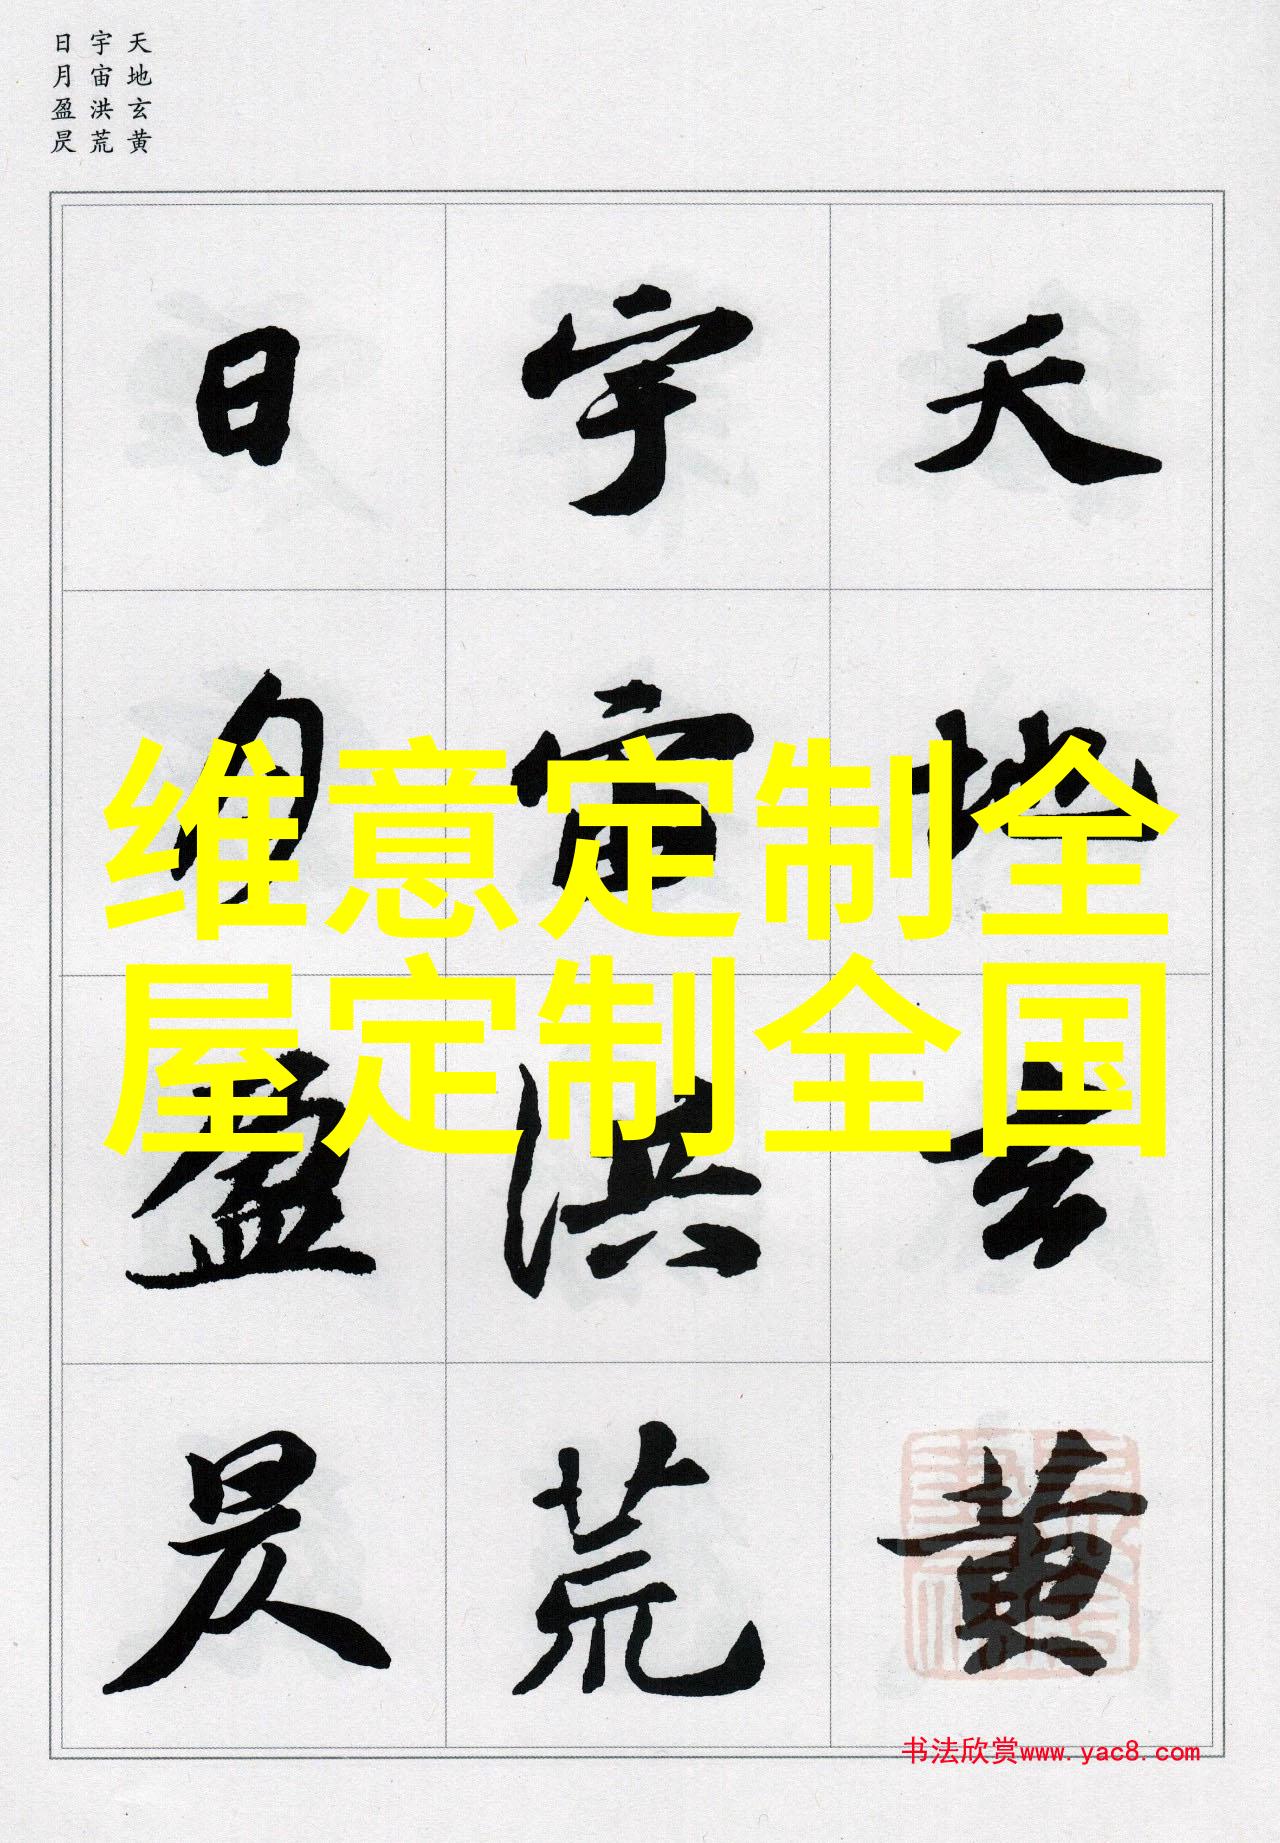 天地玄黄
宇宙洪荒
日月盈昃
天地玄黄
宇宙洪荒
日月盈昃
维意定制全
屋定制全国
书法欣赏www.yac8.com